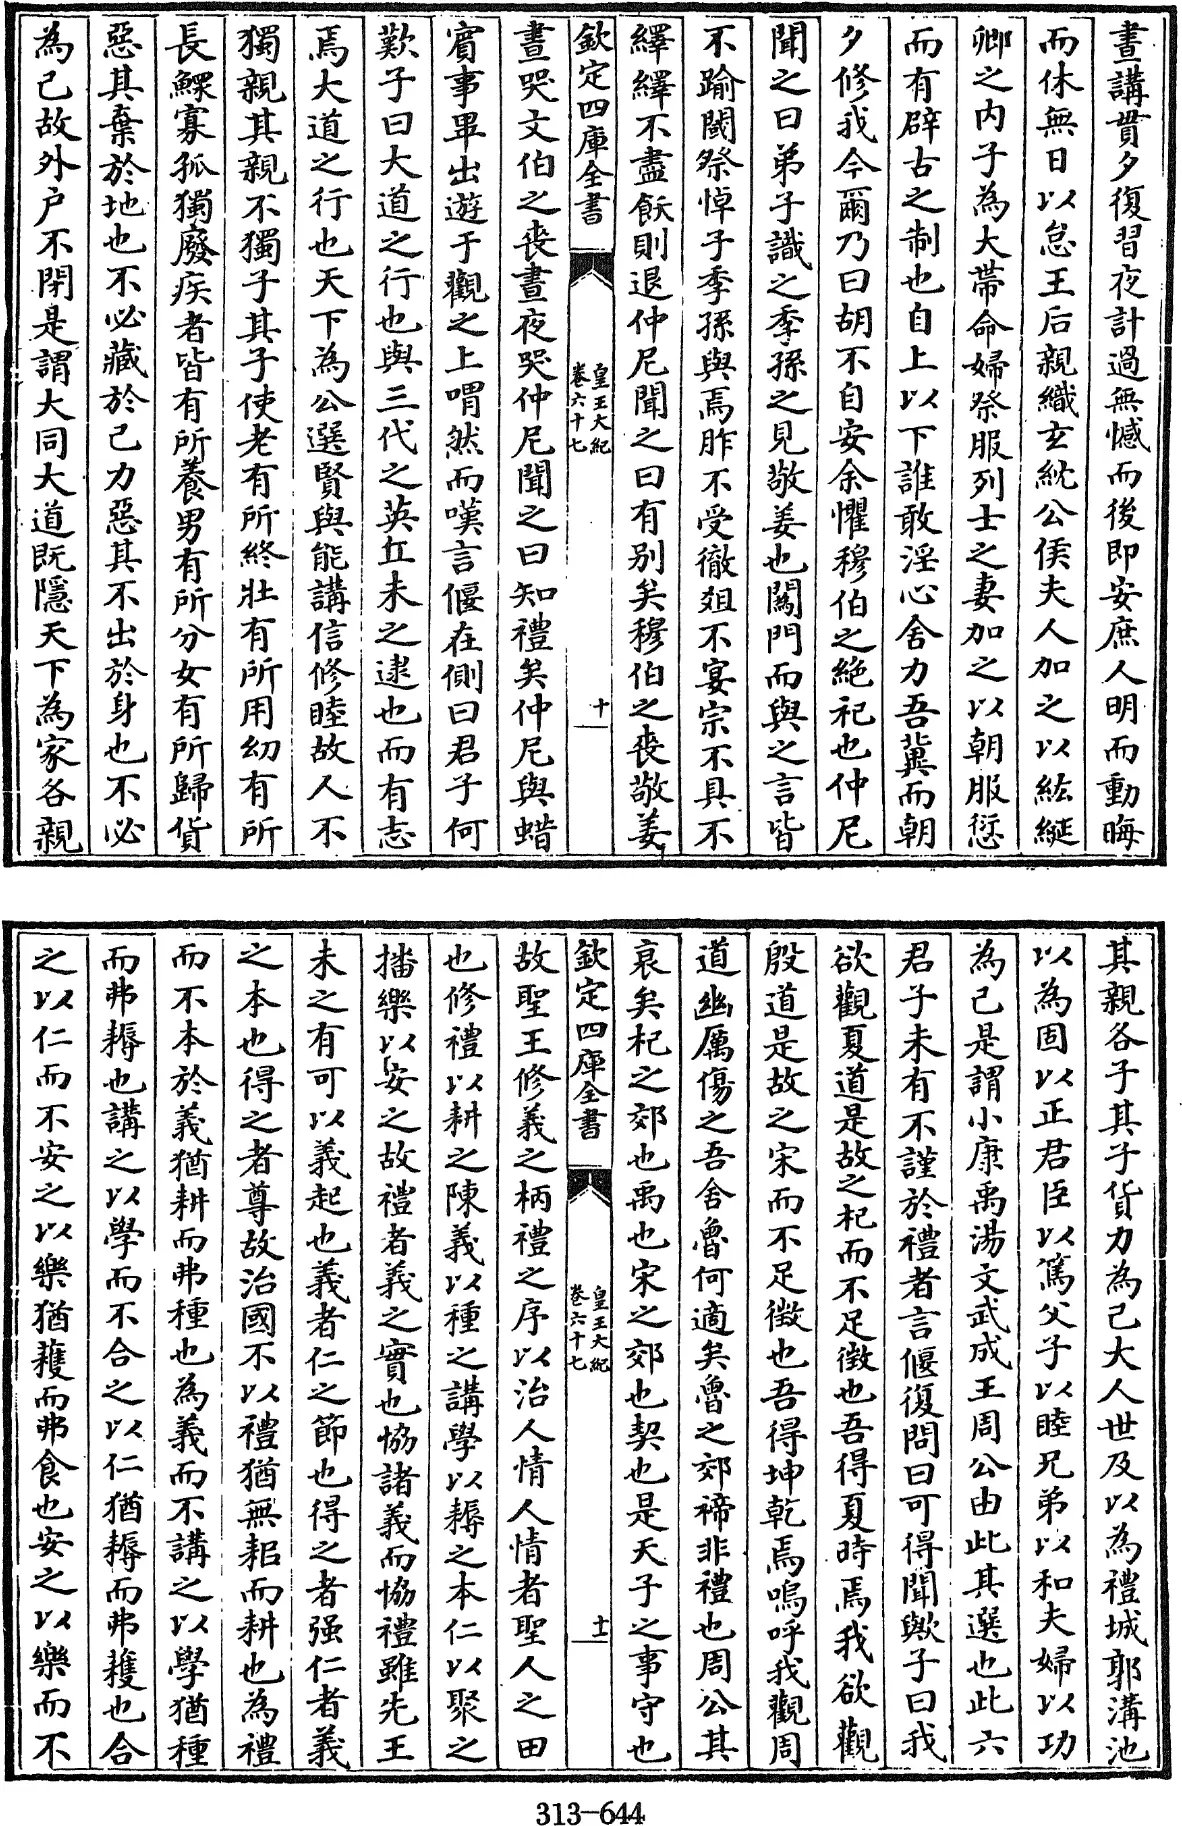 晝講貫夕復習夜計過無憾而後即安庶人明而動晦
而休無日以怠王后親織玄紞公侯夫人加之以紘綖
卿之内子為大帶命婦祭服列士之妻加之以朝服愆
而有辟古之制也自上以下誰敢淫心舍力吾冀而朝
夕修我今爾乃曰胡不自安余懼穆伯之絶祀也仲尼
聞之曰弟子識之季孫之見敬姜也闖門而與之言皆
不踰閾祭悼子季孫與焉胙不受徹俎不宴宗不具不
繹繹不盡飫則退仲尼聞之曰有别矣穆伯之喪敬姜
欽定四庫全書
皇王大紀
卷六十七
十
晝哭文伯之喪晝夜哭仲尼聞之曰知禮矣仲尼與蜡
賓事畢出遊于觀之上喟然而嘆言偃在側曰君子何
歎子曰大道之行也與三代之英丘未之逮也而有志
焉大道之行也天下為公選賢與能講信修睦故人不
獨親其親不獨子其子使老有所終壯有所用幼有所
長鰥寡孤獨廢疾者皆有所養男有所分女有所歸貨
惡其棄於地也不必藏於己力惡其不出於身也不必
為己故外户不閉是謂大同大道既隱天下為家各親
其親各子其子貨力為己大人世及以為禮城郭溝池
以為固以正君臣以篤父子以睦兄弟以和夫婦以功
為己是謂小康禹湯文武成王周公由此其選也此六
君子未有不謹於禮者言偃復問曰可得聞歟子曰我
欲觀夏道是故之杞而不足徵也吾得夏時焉我欲觀
殷道是故之宋而不足徵也吾得坤乾焉嗚呼我觀周
道幽厲傷之吾舍魯何適矣魯之郊禘非禮也周公其
衰矣杞之郊也禹也宋之郊也契也是天子之事守也
欽定四庫全書
皇王大紀
卷六十七
十一
故聖王修義之柄禮之序以治人情人情者聖人之田
也修禮以耕之陳義以種之講學以耨之本仁以聚之
播樂以安之故禮者義之實也協諸義而協禮雖先王
未之有可以義起也義者仁之節也得之者强仁者義
之本也得之者尊故治國不以禮猶無耜而耕也為禮
而不本於義猶耕而弗種也為義而不講之以學猶種
而弗耨也講之以學而不合之以仁猶耨而弗穫也合
之以仁而不安之以樂猶穫而弗食也安之以樂而不
313-644